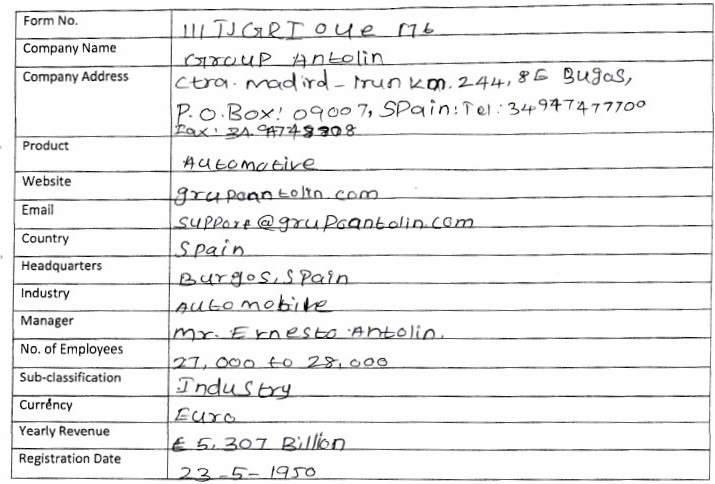 Form No. 111 TJGRI OUE 176
Company Name Group Antolin
Company Address Ctra. madird - Irun km. 244, 8E Bugos,
P.O.Box: 09007, SPain: Tel: 34947477700
Fax: 34 94748
Product Automotive
Website grupoantolin.com
Email support@grupoantolin.com
Country Spain
Headquarters Burgos, SPain
Industry Automobile
Manager Mr. Ernesto Antolin.
No. of Employees 27,000 to 28,000
Sub-classification Industry
Currency Euro
Yearly Revenue € 5.307 Billion
Registration Date 23-5-1950